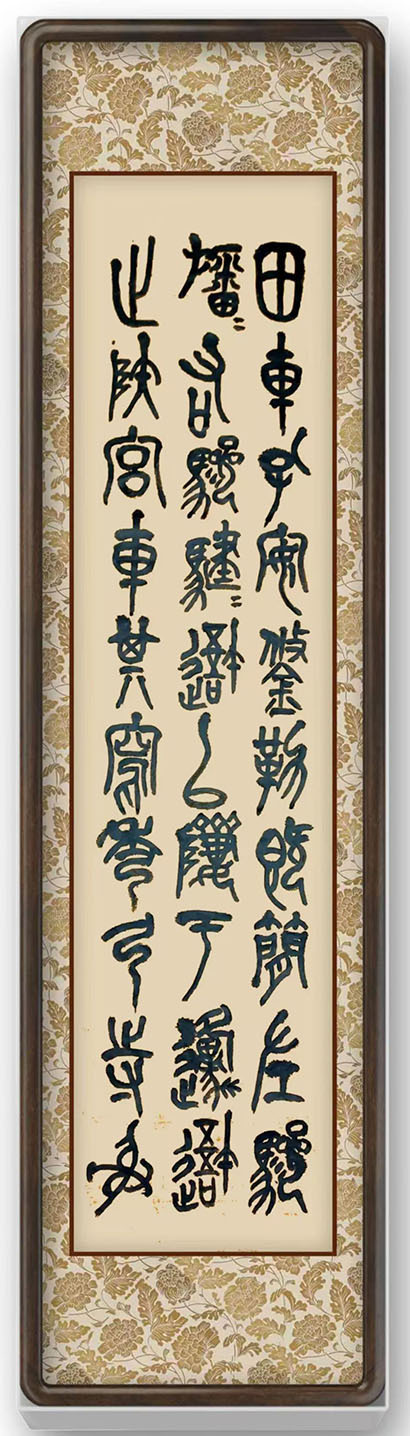 田車孔安鋚勒既簡左驂
旛〻右驂騝〻吾以隮于邍吾
止陝宮車其寫秀弓寺射